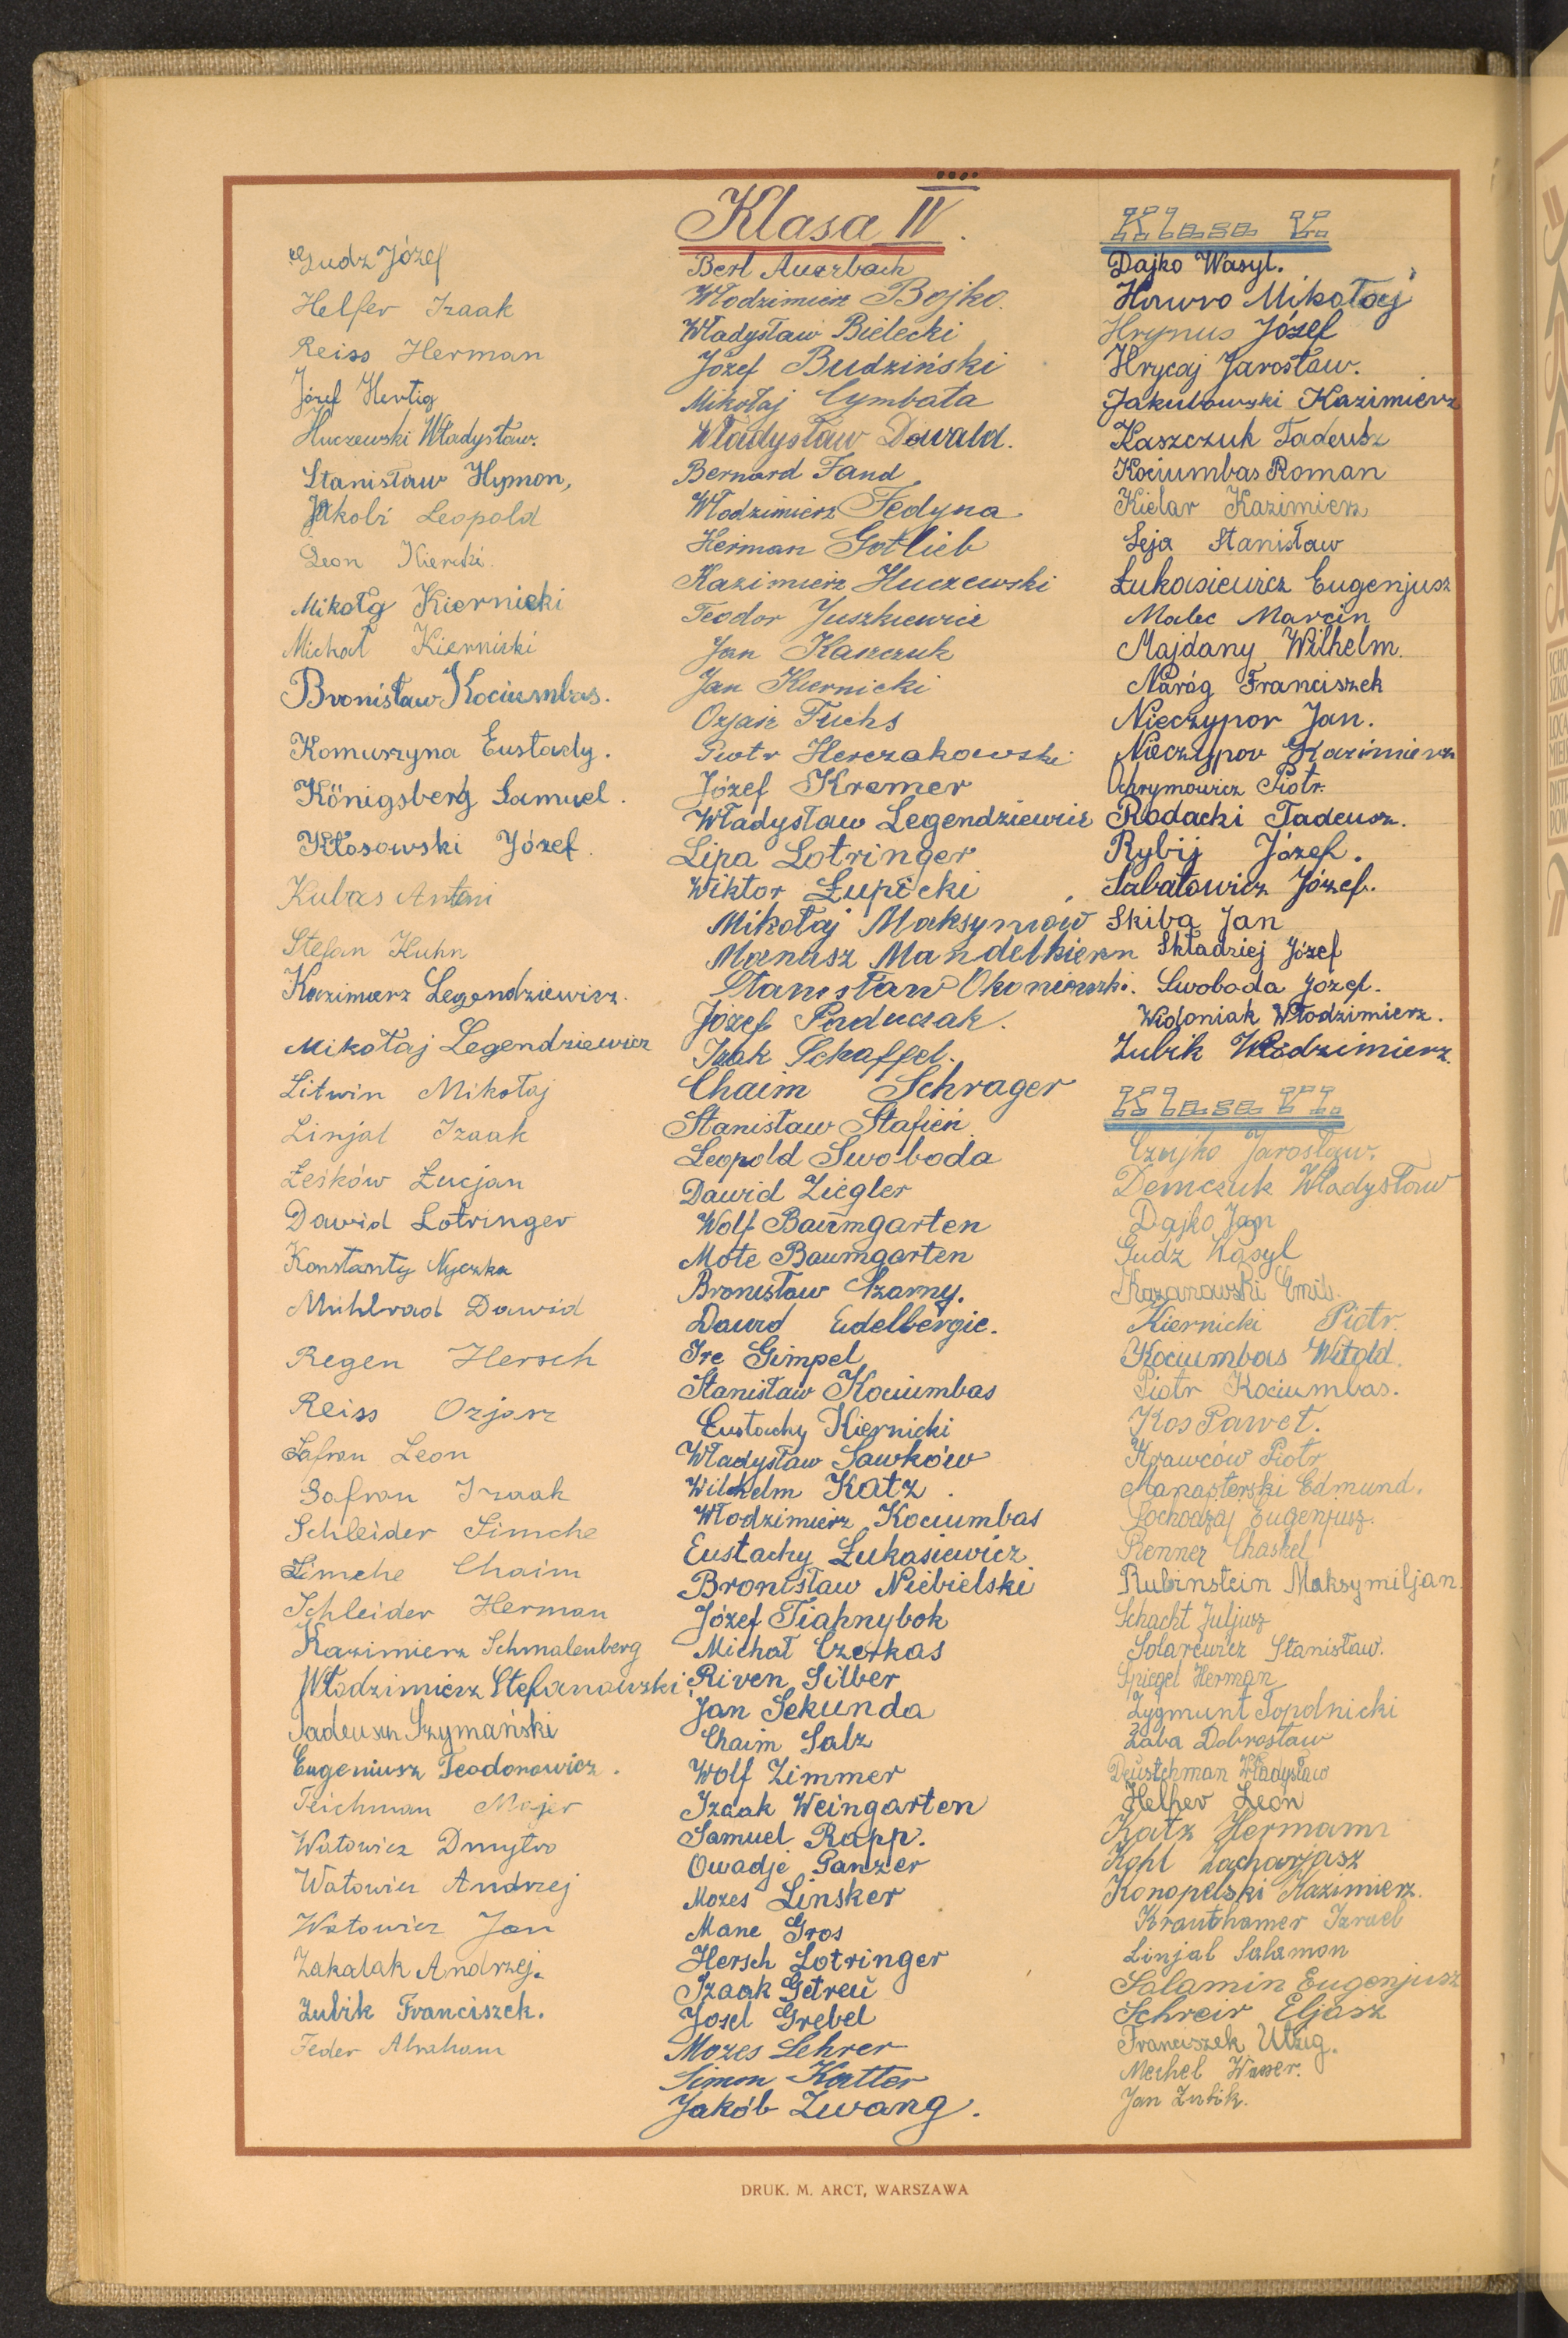 Gudz Józef
Helfer Izaak
Reiss Herman
Józef Hertig
Huczewski Władysław.
Stanisław Hymon,
Jakobi Leopold
Leon
Mikołaj Kiernicki
Michał Kiernicki
Bronisław Kociumbas.
Komuszyna Eustachy.
Königsberg Samuel.
Kłosowski Józef.
Kubas Antoni
Stefan Kuhn
Kazimierz Legendziewicz.
Mikołaj Legendziewicz
Litwin Mikołaj
Linjal Izaak
Leśków Łucjan
Dawid Lotringer
Konstanty Nyczka
Mühlrad Dawid
Regen Hersch
Reiss Ozjasz
Safran Leon
Safran Izaak
Schleider Simche
Simche Chaim
Schleider Herman
Kazimierz Schmalenberg
Włodzimierz Stefanowski
Tadeusz Szymański
Eugeniusz Teodorowicz.
Teichman Majer
Watowicz Dmytro
Watowicz Andrzej
Watowicz Jan
Zakalak Andrzej.
Zubik Franciszek.
Feder Abraham
Klasa IV.
Berl Auerbach
Włodzimierz Bojko.
Władysław Bielecki
Józef Budziński
Mikołaj Cymbała
Władysław Dawald.
Bernard Fand
Włodzimierz Fedyna
Herman Gotlieb
Kazimierz Huczewski
Teodor Juszkiewicz
Jan Kaszczuk
Jan Kiernicki
Ozjasz Fuchs
Piotr Herczakowski
Józef Kremer
Władysław Legendziewicz
Lipa Lotringer
Wiktor Łupicki
Mikołaj Maksymów
Manusz Mandelkiern
Stanisław
Józef Paduczak.
Izak Schaffel.
Chaim Schrager
Stanisław Stafień
Leopold Swoboda
Dawid Ziegler
Wolf Baumgarten
Mote Baumgarten
Bronisław Czarny.
Dawid Eudelbergie.
Ire Gimpel
Stanisław Kociumbas
Eustachy Kiernicki
Władysław Sawków
Wilhelm Katz.
Włodzimierz Kociumbas
Eustachy Łukasiewicz
Bronisław Niebielski
Józef Tiahnybok
Michał Czerkas
Riven Silber
Jan Sekunda
Chaim Salz
Wolf Zimmer
Izaak Weingarten
Samuel Rapp.
Owadje Panzer
Mozes Linsker
Mane Gros
Hersch Lotringer
Izaak Getreü
Josel Grebel
Mozes Lehrer
Simon Katter
Jakób Zwang.
Klasa V.
Dajko Wasyl.
Hawro Mikołaj
Hrynus Józef
Hrycaj Jarosław.
Jakubowski Kazimierz
Kaszczuk Tadeusz
Kociumbas Roman
Kielar Kazimierz
Leja Stanisław
Łukasiewicz Eugenjusz
Malec Marcin
Majdany Wilhelm.
Naróg Franciszek
Nieczypor Jan.
Nieczypor Kazimierz
Ochrymowicz Piotr.
Rodacki Tadeusz.
Rybij Józef.
Sabatowicz Józef.
Skiba Jan
Składziej Józef
Swoboda Józef.
Widoniak Włodzimierz.
Zubik Włodzimierz.
Klasa VI.
Czujko Jarosław.
Demczuk Władysław
Dajko Jan
Gudz Wasyl
Kazanowski Emil.
Kiernicki Piotr.
Kociumbas Witold.
Piotr Kociumbas.
Kos Paweł.
Krawców Piotr
Manasterski Edmund.
Pochodzaj Eugenjusz.
Renner Chaskel
Rubinstein Maksymiljan.
Schacht Juljusz
Solarewicz Stanisław.
Spiegel Herman
Zygmunt Topolnicki
Żaba Dobrosław
Deustchman Władysław
Helfer Leon
Katz Hermann
Kohl Zacharjasz
Konopelski Kazimierz.
Krauthamer Izrael
Linjal Salamon
Salamin Eugenjusz
Schreir Eljasz
Franciszek Utzig.
Mechel Wasser.
Jan Zubik.
DRUK. M. ARCT, WARSZAWA